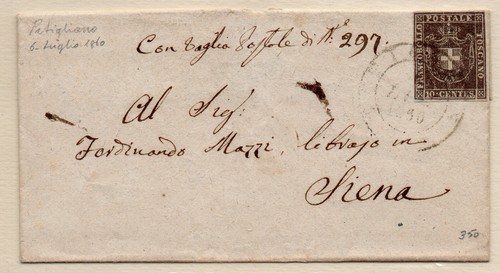 Pitigliano
6 Luglio 1860
Con Vaglia Postale di N.º 297.
FRANCOBOLLO POSTALE TOSCANO
10 CENTES
1860
Al Sig.
Ferdinando Mazzi, librajo in
Siena
350